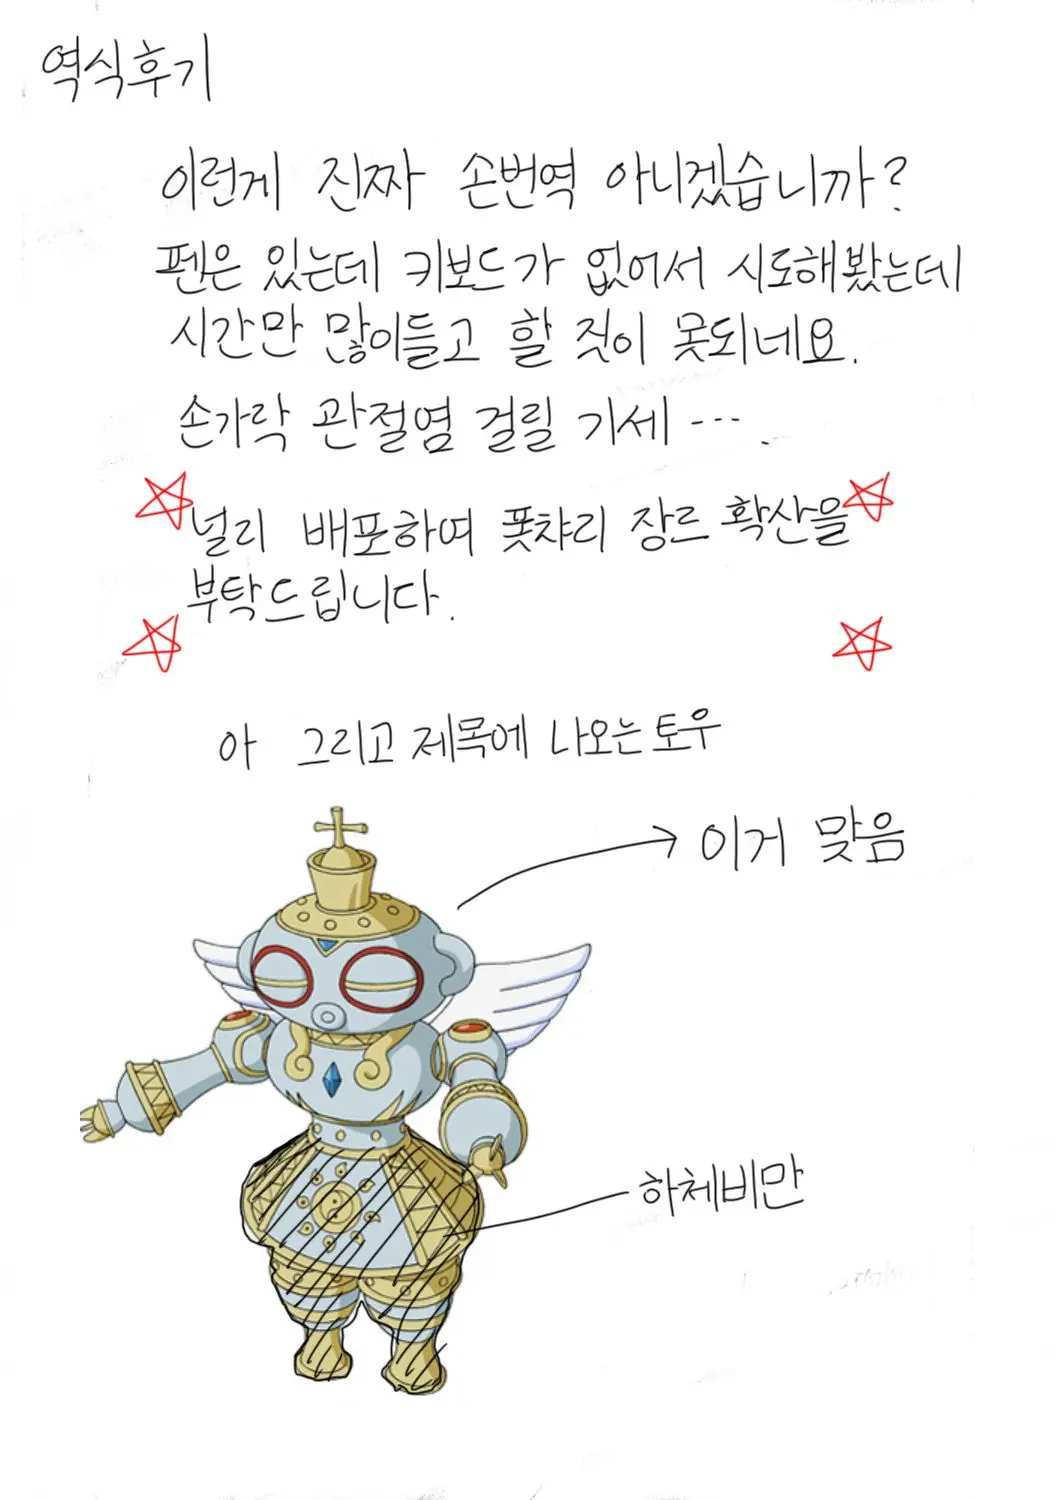 역식후기
이런게 진짜 손번역 아니겠습니까?
펜은 있는데 키보드가 없어서 시도해봤는데
시간만 많이들고 할 짓이 못되네요.
손가락 관절염 걸릴 기세 ….
널리 배포하여 폿챠리 장르 확산을
부탁드립니다.
아 그리고 제목에 나오는 토우
이거 맞음
하체비만